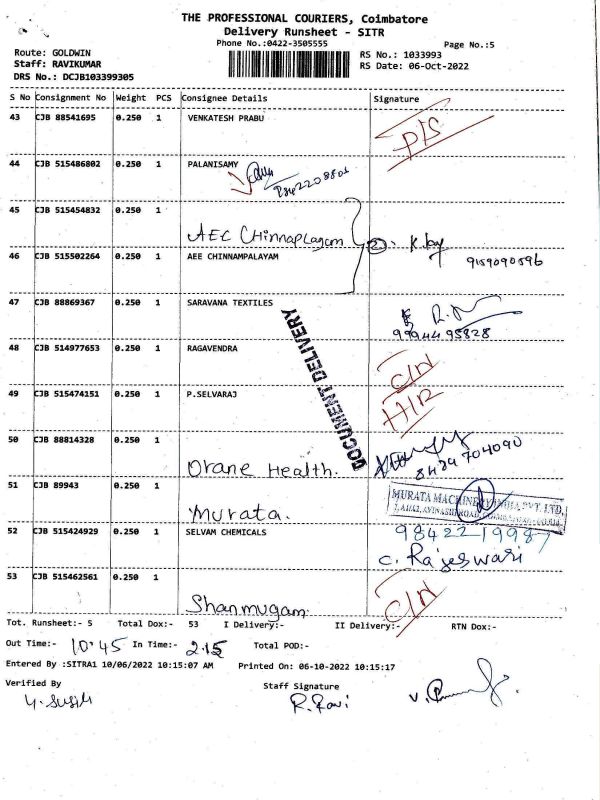 THE PROFESSIONAL COURIERS, Coimbatore
Delivery Runsheet - SITR
Phone No.:0422-3505555
Page No.:5
Route: GOLDWIN
Staff: RAVIKUMAR
DRS No.: DCJB103399305
RS No.: 1033993
RS Date: 06-Oct-2022
S No Consignment No Weight PCS Consignee Details Signature
43 CJB 88541695 0.250 1 VENKATESH PRABU
44 CJB 515486802 0.250 1 PALANISAMY
45 CJB 515454832 0.250 1
AEC Chinnaplagam
46 CJB 515502264 0.250 1 AEE CHINNAMPALAYAM
9159090596
47 CJB 88869367 0.250 1 SARAVANA TEXTILES
9944495828
48 CJB 514977653 0.250 1 RAGAVENDRA
49 CJB 515474151 0.250 1 P.SELVARAJ
DOCUMENT DELIVERY
50 CJB 88814328 0.250 1
Orane Health.
51 CJB 89943 0.250 1
Murata.
52 CJB 515424929 0.250 1 SELVAM CHEMICALS
9842219987
C. Rajeswari
53 CJB 515462561 0.250 1
Shanmugam.
Tot. Runsheet:- 5 Total Dox:- 53 I Delivery:- II Delivery:- RTN Dox:-
Out Time:- 10.45 In Time:- 2.15 Total POD:-
Entered By :SITRA1 10/06/2022 10:15:07 AM Printed On: 06-10-2022 10:15:17
Verified By Staff Signature
R. Ravi